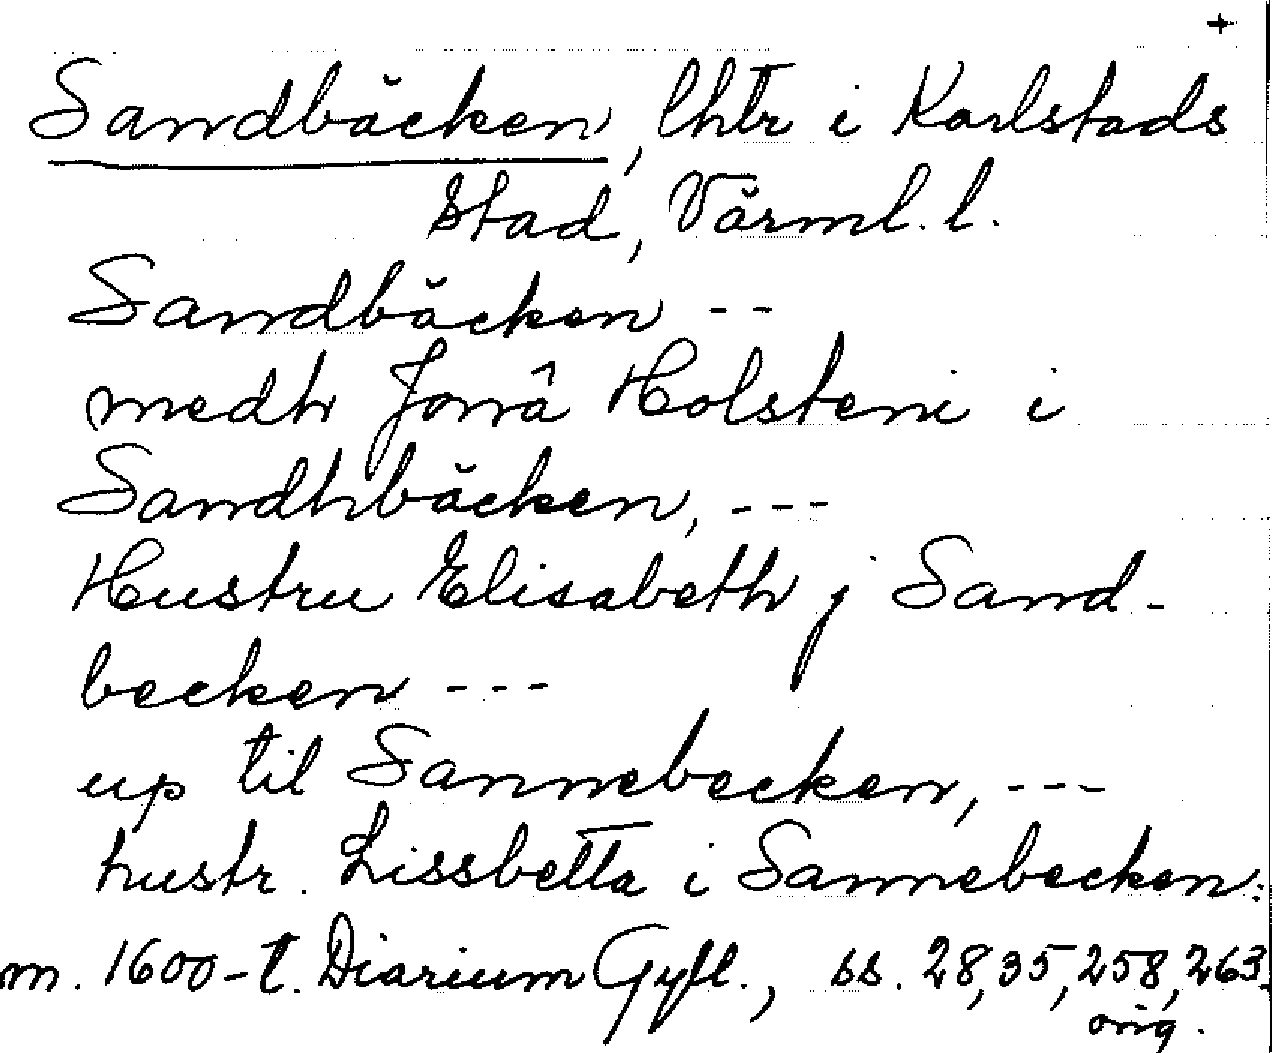 +
Sandbäcken, lhtr i Karlstads
stad, Värml. l.
Sandbäcken --
medh Jonå Holsteni i
Sandhbäcken, ---
Hustru Elisabeth j Sand-
becken ---
up til Sannebecken, ---
hustr. Lissbetta i Sannebecken.
m. 1600-t. Diarium Gyll., ss. 28, 35, 258, 263.
orig.